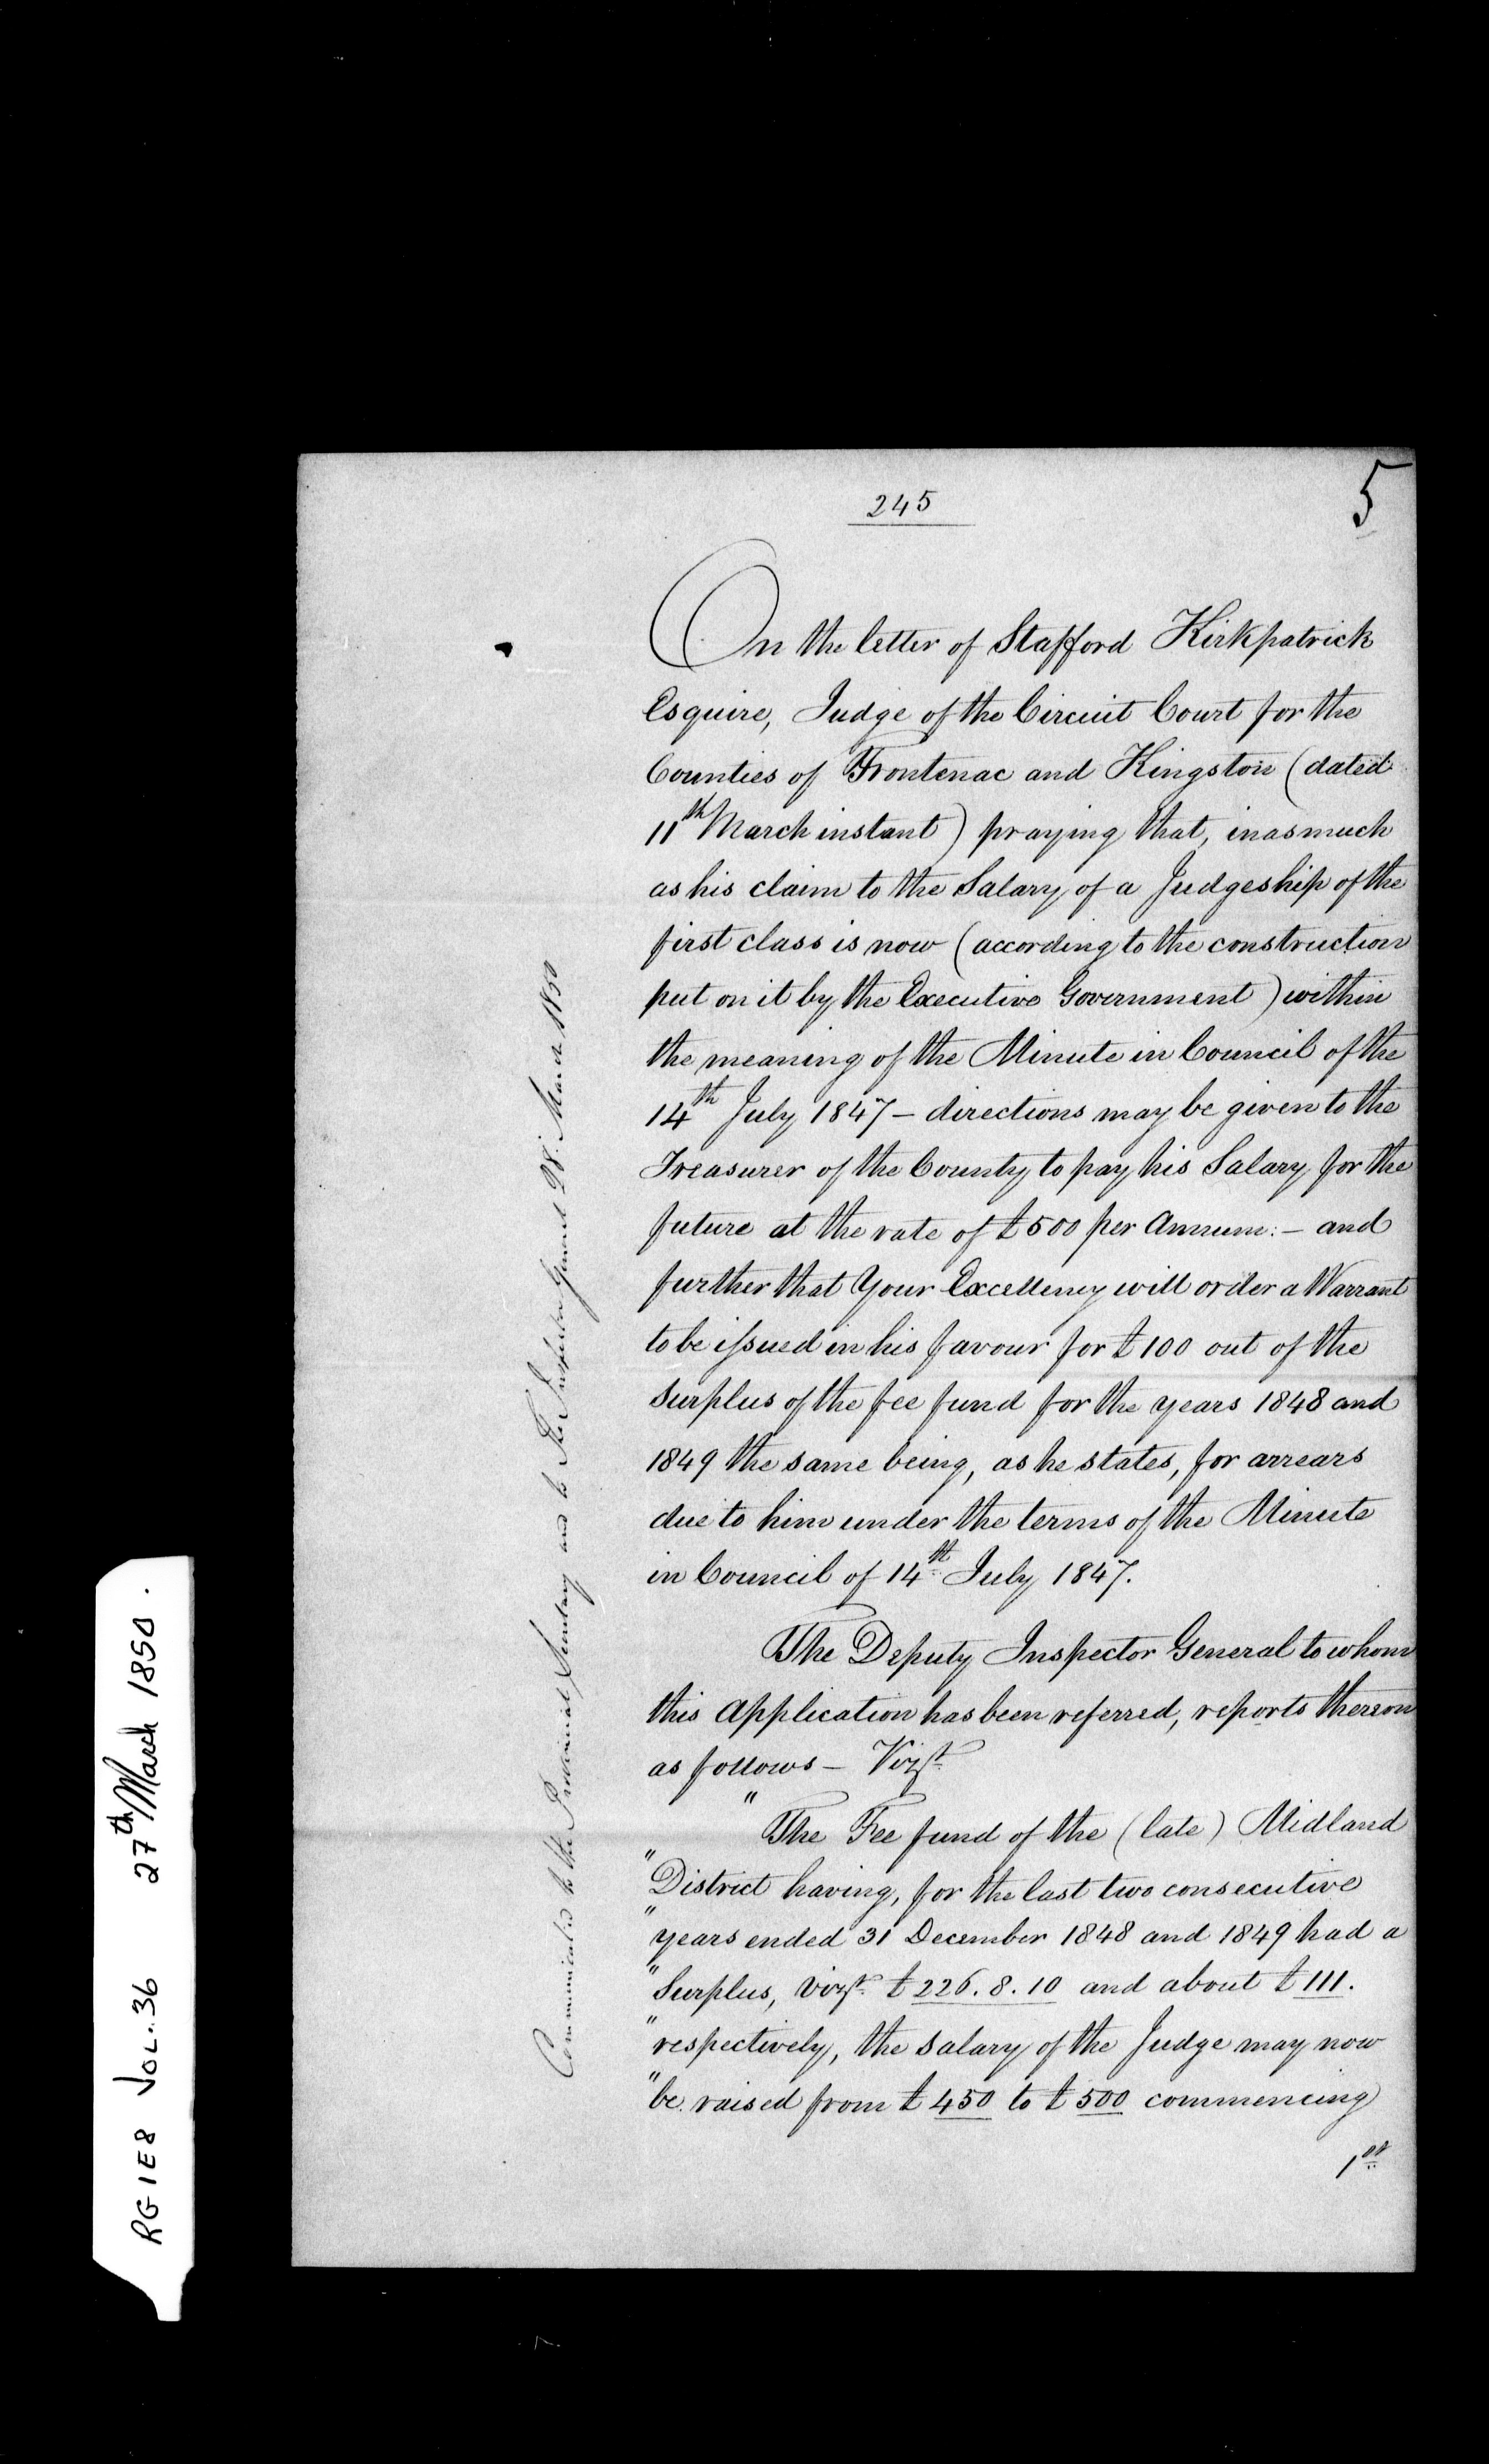 245
5
On the letter of Stafford Kirkpatrick
Esquire, Judge of the Circuit Court for the
Counties of Frontenac and Kingston (dated
11th March instant) praying that, inasmuch
as his claim to the Salary of a Judgeship of the
first class is now (according to the construction
put on it by the Executive Government) within
the meaning of the Minute in Council of the
14th July 1847 – directions may be given to the
Treasurer of the County to pay his Salary for the
future at the rate of £500 per Annum: – and
further that Your Excellency will order a Warrant
to be issued in his favour for £100 out of the
surplus of the fee fund for the years 1848 and
1849 the same being, as he states, for arrears
due to him under the terms of the Minute
in Council of 14th July 1847.
The Deputy Inspector General to whom
this Application has been referred, reports thereon
as follows – Vizt.
" The Fee fund of the (late) Midland
" District having, for the last two consecutive
" years ended 31 December 1848 and 1849 had a
" Surplus, vizt. £226.8.10 and about £111.
" respectively, the salary of the Judge may now
" be raised from £450 to £500 commencing
1st
Communicated to the Provincial Secretary and to the Inspector General 28. March 1850
RG 1 E8 VOL. 36 27th March 1850.